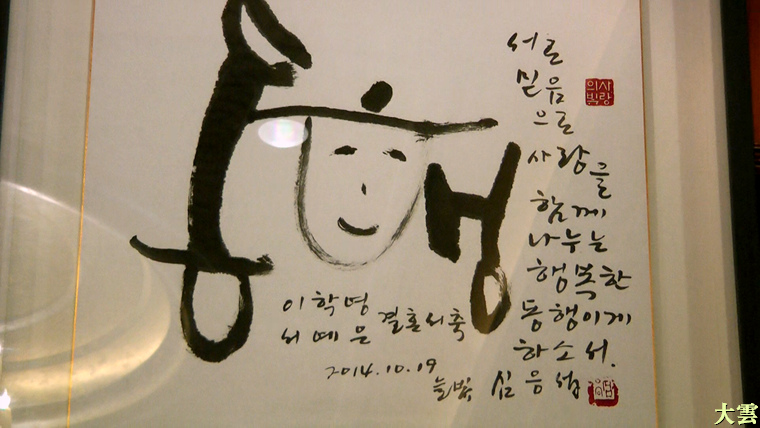 동행
서로
믿음
으로
사랑을
함께
나누는
행복한
동행이게
하소서.
사랑의빛
이학명
결혼서축
2014.10.19
늘빛 심응섭
大雲